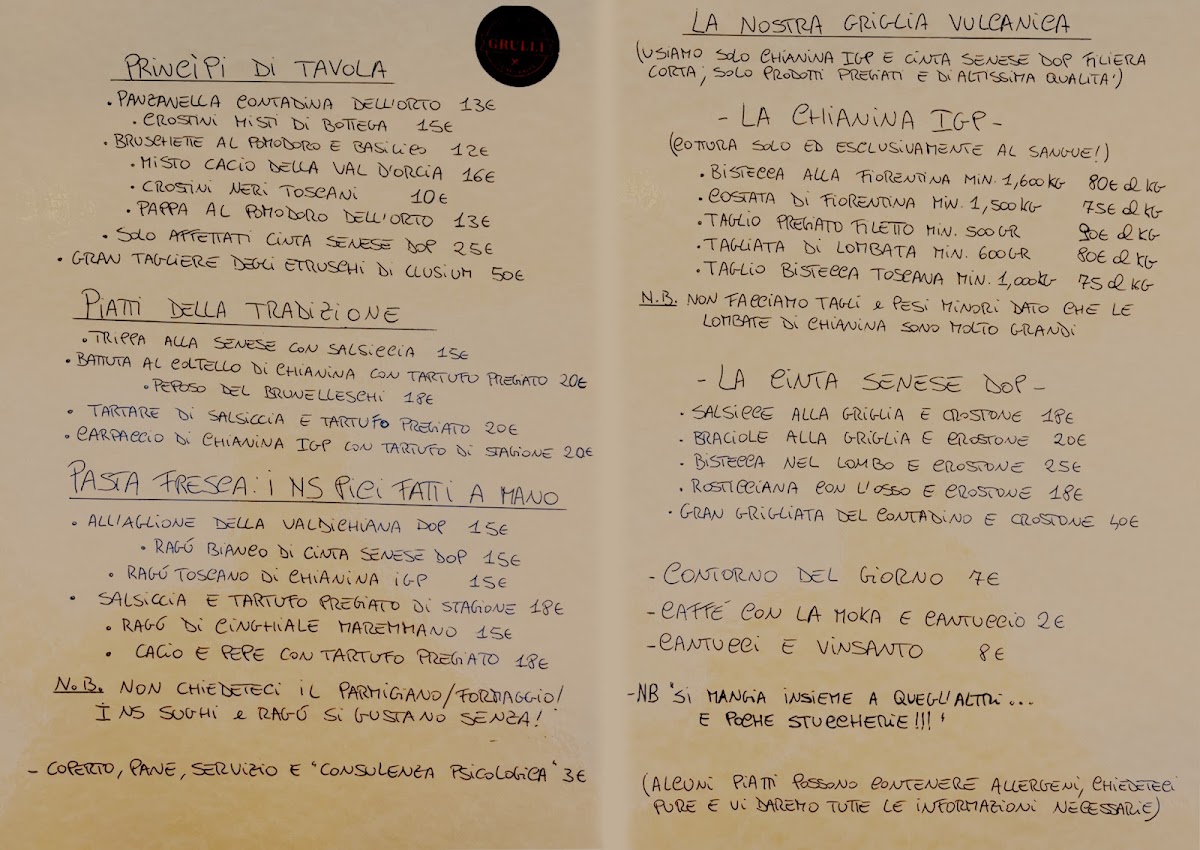 GRULLI
PRINCÌPI DI TAVOLA
• PANZANELLA CONTADINA DELL'ORTO 13€
• CROSTINI MISTI DI BOTTEGA 15€
• BRUSCHETTE AL POMODORO E BASILICO 12€
• MISTO CACIO DELLA VAL D'ORCIA 16€
• CROSTINI NERI TOSCANI 10€
• PAPPA AL POMODORO DELL'ORTO 13€
• SOLO AFFETTATI CINTA SENESE DOP 25€
• GRAN TAGLIERE DEGLI ETRUSCHI DI CLUSIUM 50€
PIATTI DELLA TRADIZIONE
• TRIPPA ALLA SENESE CON SALSICCIA 15€
• BATTUTA AL COLTELLO DI CHIANINA CON TARTUFO PREGIATO 20€
• PEPOSO DEL BRUNELLESCHI 18€
• TARTARE DI SALSICCIA E TARTUFO PREGIATO 20€
• CARPACCIO DI CHIANINA IGP CON TARTUFO DI STAGIONE 20€
PASTA FRESCA: I NS PICI FATTI A MANO
• ALL'AGLIONE DELLA VALDICHIANA DOP 15€
• RAGÚ BIANCO DI CINTA SENESE DOP 15€
• RAGÚ TOSCANO DI CHIANINA IGP 15€
• SALSICCIA E TARTUFO PREGIATO DI STAGIONE 18€
• RAGÚ DI CINGHIALE MAREMMANO 15€
• CACIO E PEPE CON TARTUFO PREGIATO 18€
N.B. NON CHIEDETECI IL PARMIGIANO/FORMAGGIO!
I NS SUGHI e RAGÚ SI GUSTANO SENZA!
- COPERTO, PANE, SERVIZIO E "CONSULENZA PSICOLOGICA" 3€
LA NOSTRA GRIGLIA VULCANICA
(USIAMO SOLO CHIANINA IGP E CINTA SENESE DOP FILIERA
CORTA; SOLO PRODOTTI PREGIATI E DI ALTISSIMA QUALITA')
- LA CHIANINA IGP -
(COTTURA SOLO ED ESCLUSIVAMENTE AL SANGUE!)
• BISTECCA ALLA FIORENTINA MIN. 1,600 KG 80€ al KG
• COSTATA DI FIORENTINA MIN. 1,500 KG 75€ al KG
• TAGLIO PREGIATO FILETTO MIN. 500 GR 90€ al KG
• TAGLIATA DI LOMBATA MIN. 600 GR 80€ al KG
• TAGLIO BISTECCA TOSCANA MIN. 1,000 KG 75 al KG
N.B. NON FACCIAMO TAGLI e PESI MINORI DATO CHE LE
LOMBATE DI CHIANINA SONO MOLTO GRANDI
- LA CINTA SENESE DOP -
• SALSICCE ALLA GRIGLIA E CROSTONE 18€
• BRACIOLE ALLA GRIGLIA E CROSTONE 20€
• BISTECCA NEL LOMBO E CROSTONE 25€
• ROSTICCIANA CON L'OSSO E CROSTONE 18€
• GRAN GRIGLIATA DEL CONTADINO E CROSTONE 40€
- CONTORNO DEL GIORNO 7€
- CAFFÉ CON LA MOKA E CANTUCCIO 2€
- CANTUCCI E VINSANTO 8€
- NB "SI MANGIA INSIEME A QUEGL'ALTRI...
E POCHE STUCCHERIE!!!"
(ALCUNI PIATTI POSSONO CONTENERE ALLERGENI, CHIEDETECI
PURE E VI DAREMO TUTTE LE INFORMAZIONI NECESSARIE)